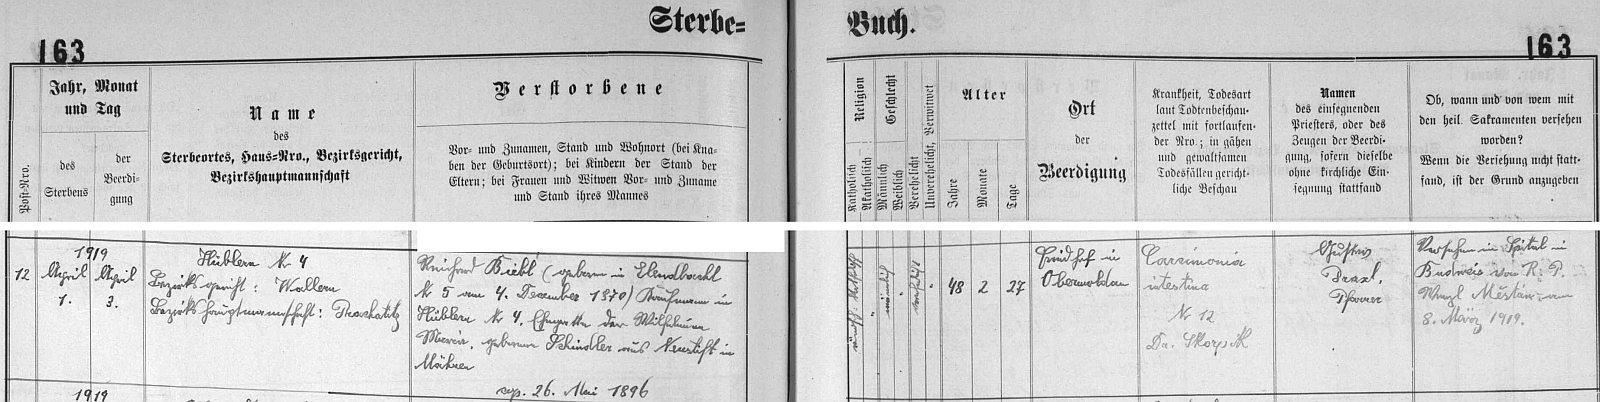 Sterbe=
Buch.
163
163
Jahr, Monat
und Tag
Name
des
Sterbeortes, Haus=Nro., Bezirksgericht,
Bezirkshauptmannschaft
Verstorbene
Vor- und Zunamen, Stand und Wohnort (bei Kna-
ben der Geburtsort); bei Kindern der Stand der
Eltern; bei Frauen und Witwen Vor- und Zuname
und Stand ihres Mannes
Post-Nro.
des
Sterbens
der
Beerdi-
gung
Religion
Katholisch
Akatholisch
Geschlecht
Männlich
Weiblich
Verehelicht
Unverehelicht, Verwitwet
Alter
Jahre
Monate
Tage
Ort
der
Beerdigung
Krankheit, Todesart
laut Todtenbeschau-
zettel mit fortlaufen-
der Nro.; in gähen
und gewaltsamen
Todesfällen gericht-
liche Beschau
Namen
des einsegnenden
Priesters, oder des
Zeugen der Beerdi-
gung, sofern dieselbe
ohne kirchliche Ein-
segnung stattfand
Ob, wann und von wem mit
den heil. Sakramenten versehen
worden?
Wenn die Versehung nicht statt-
fand, ist der Grund anzugeben
1919
12 April April
1. 3.
Hüblern Nr 4
Bezirksgericht: Wallern
Bezirkshauptmannschaft: Prachatitz
Reinhard Biebl (geboren in Elendbachl
Nr 5 am 4. December 1870) Kaufmann in
Hüblern Nr 4, Ehegatte der Wilhelmine
Maria, geborene Schindler aus Neustift in
Mähren
cop. 26. Mai 1896
48 2 27
Friedhof in
Obermoldau
Carcinoma
intestina
Nr 12
Dr. Skorpik
Gustav
Prazl,
Pfarrer
Versehen im Spital in
Budweis von R. P.
8. März 1919.
1919